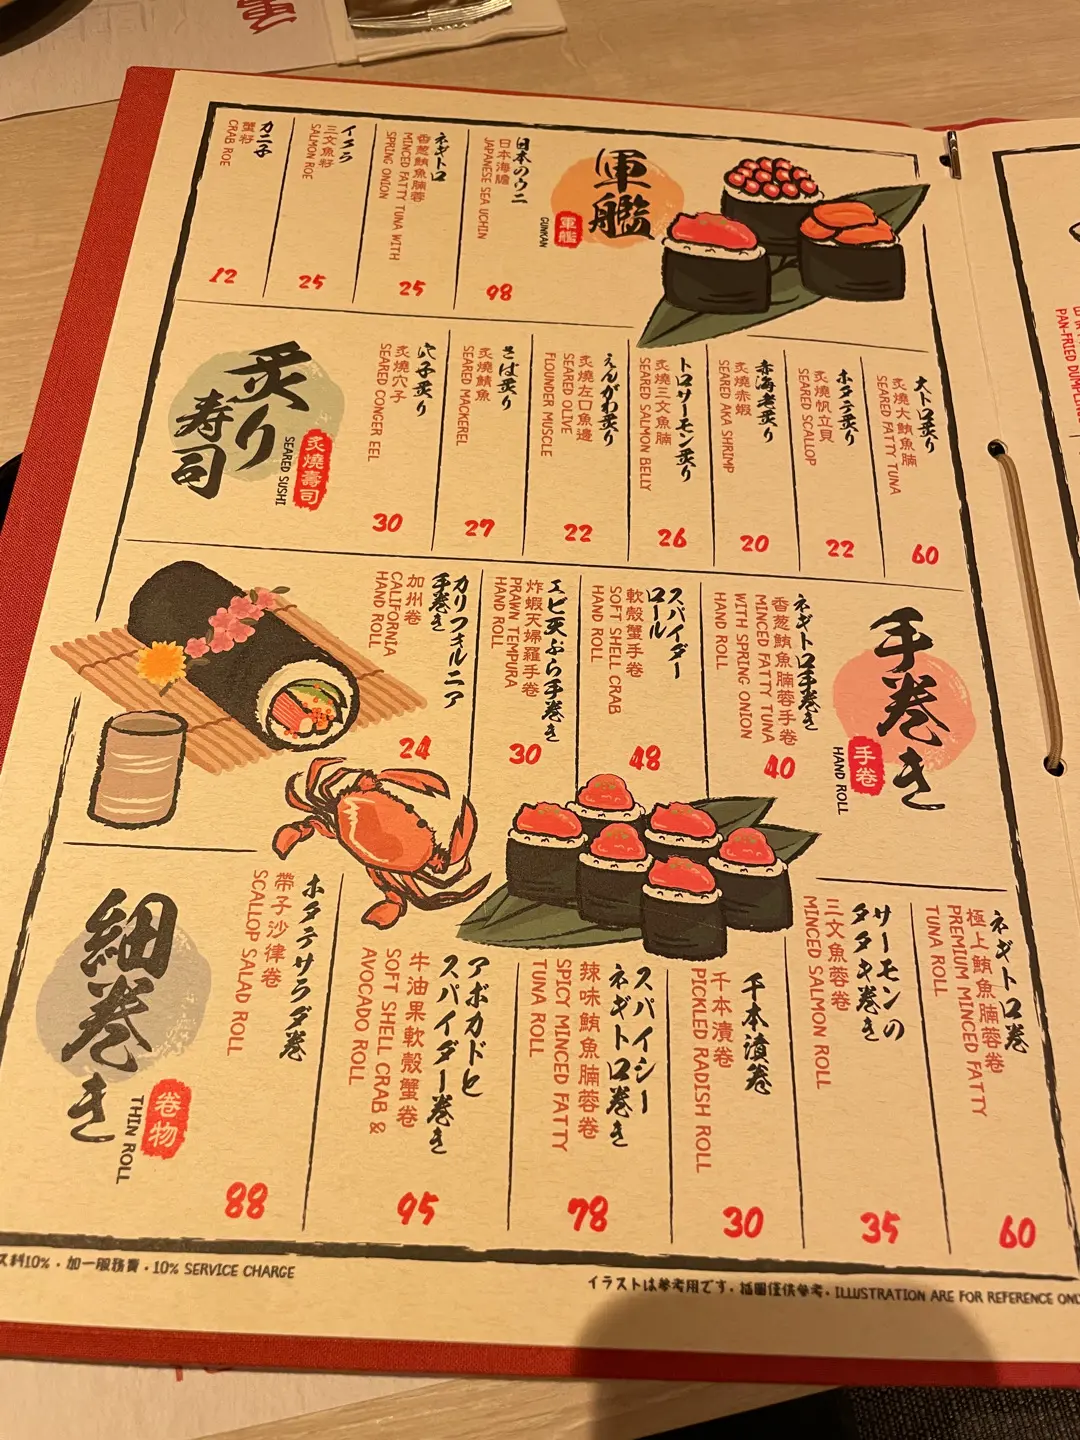 軍艦
軍艦
GUNKAN
日本のウニ
日本海膽
JAPANESE SEA UCHIN
98
ネギトロ
香葱鮪魚腩蓉
MINCED FATTY TUNA WITH
SPRING ONION
25
イクラ
三文魚籽
SALMON ROE
25
カニ子
蟹籽
CRAB ROE
12
炙り
寿司
炙燒壽司
SEARED SUSHI
大トロ炙り
炙燒大鮪魚腩
SEARED FATTY TUNA
60
ホタテ炙り
炙燒帆立貝
SEARED SCALLOP
22
赤海老炙り
炙燒赤蝦
SEARED AKA SHRIMP
20
トロサーモン炙り
炙燒三文魚腩
SEARED SALMON BELLY
26
えんがわ炙り
炙燒左口魚邊
SEARED OLIVE
FLOUNDER MUSCLE
22
さば炙り
炙燒鯖魚
SEARED MACKEREL
27
穴子炙り
炙燒穴子
SEARED CONGER EEL
30
手巻き
手卷
HAND ROLL
ネギトロ手巻き
香葱鮪魚腩蓉手卷
MINCED FATTY TUNA
WITH SPRING ONION
HAND ROLL
40
スパイダー
ロール
軟殼蟹手卷
SOFT SHELL CRAB
HAND ROLL
48
エビ天ぷら手巻き
炸蝦天婦羅手卷
PRAWN TEMPURA
HAND ROLL
30
カリフォルニア
手巻き
加州卷
CALIFORNIA
HAND ROLL
24
細巻き
卷物
THIN ROLL
ネギトロ巻
極上鮪魚腩蓉卷
PREMIUM MINCED FATTY
TUNA ROLL
60
サーモンの
タタキ巻き
三文魚蓉卷
MINCED SALMON ROLL
35
千本漬巻
千本漬卷
PICKLED RADISH ROLL
30
スパイシー
ネギトロ巻き
辣味鮪魚腩蓉卷
SPICY MINCED FATTY
TUNA ROLL
78
アボカドヒ
スパイダー巻き
牛油果軟殼蟹卷
SOFT SHELL CRAB &
AVOCADO ROLL
95
ホタテサラダ巻
帶子沙律卷
SCALLOP SALAD ROLL
88
ス料10%・加一服務費・10% SERVICE CHARGE
イラストは参考用です・插圖僅供參考・ILLUSTRATION ARE FOR REFERENCE ONL
PAN-FRIED DUMPLING